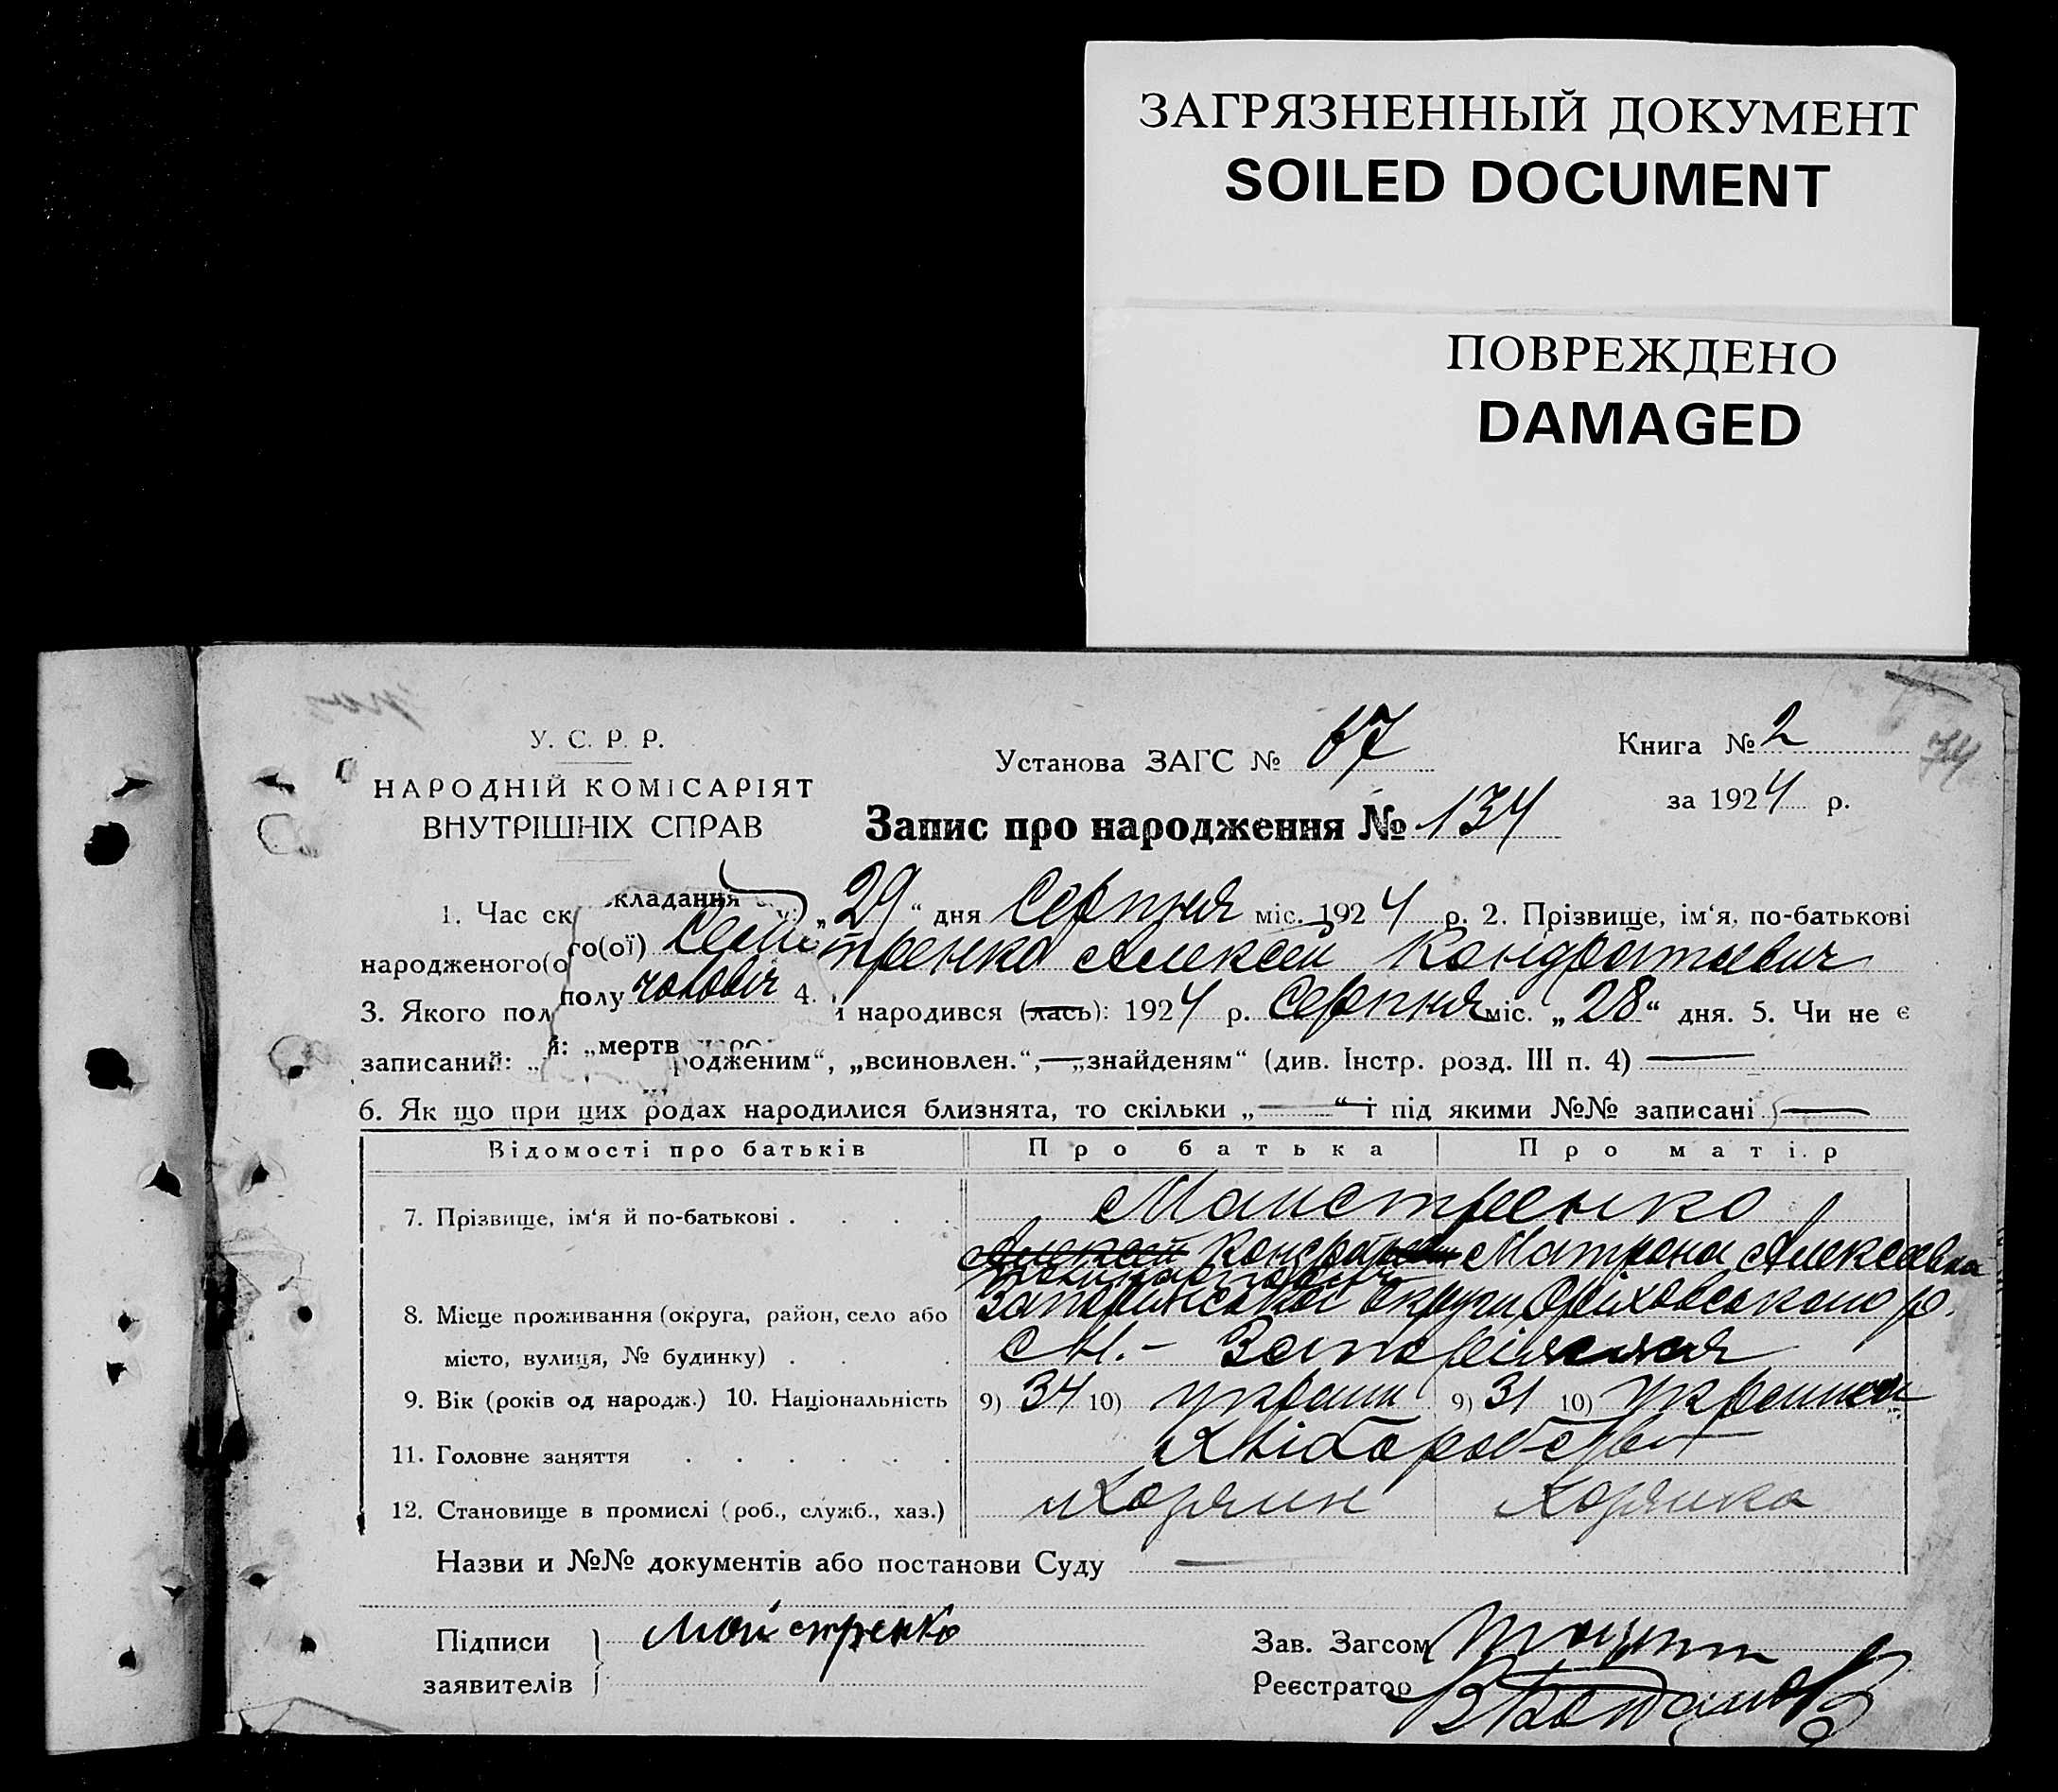 ЗАГРЯЗНЕННЫЙ ДОКУМЕНТ
SOILED DOCUMENT
ПОВРЕЖДЕНО
DAMAGED
74
У. С. Р. Р.
НАРОДНІЙ КОМІСАРІЯТ
ВНУТРІШНІХ СПРАВ
Установа ЗАГС № 67
Книга № 2
за 1924 р.
Запис про народження № 134
1. Час ск кладання „29“ дня Серпня міс. 1924 р. 2. Прізвище, ім'я, по-батькові
народженого(о го(ої) тренко Алексей Кондратьевич
3. Якого пол полу чоловіч 4. народився (лась): 1924 р. Серпня міс. „28“ дня. 5. Чи не є
записаний: „ й: „мертв родженим“, „всиновлен.“, „знайденям“ (див. Інстр. розд. III п. 4) —
6. Як що при цих родах народилися близнята, то скільки „—“ і під якими №№ записані —
Відомості про батьків Про батька Про матір
7. Прізвище, ім'я й по-батькові . . . . Маистренко
Алексей Кондрат Матрона Алексеевна
8. Місце проживання (округа, район, село або Запорижської округи Оріховського р.
місто, вулиця, № будинку) . . . с М.-
9. Вік (років од народж.) 10. Національність 9) 34 10) украин 9) 31 10) украинка
11. Головне заняття . . . . . . Хліборобство
12. Становище в промислі (роб., служб., хаз.) Хозяин Хозяика
Назви и №№ документів або постанови Суду —
Підписи Майстренко
заявителів
Зав. Загсом
Реєстратор